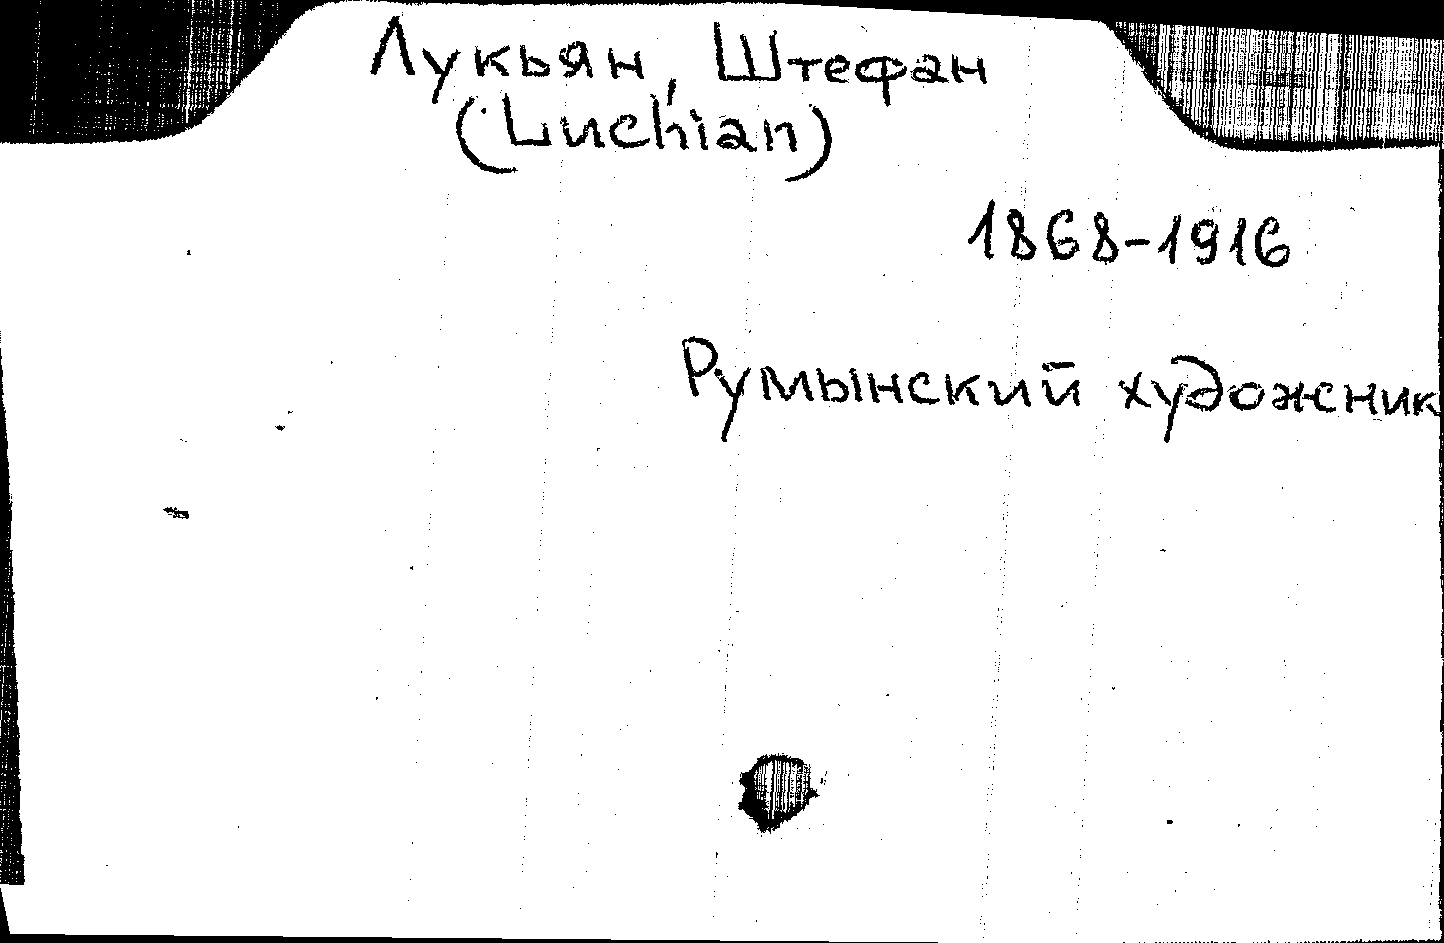 Лукьян, Штефан
(Luchian)
1868-1916
Румынский художник